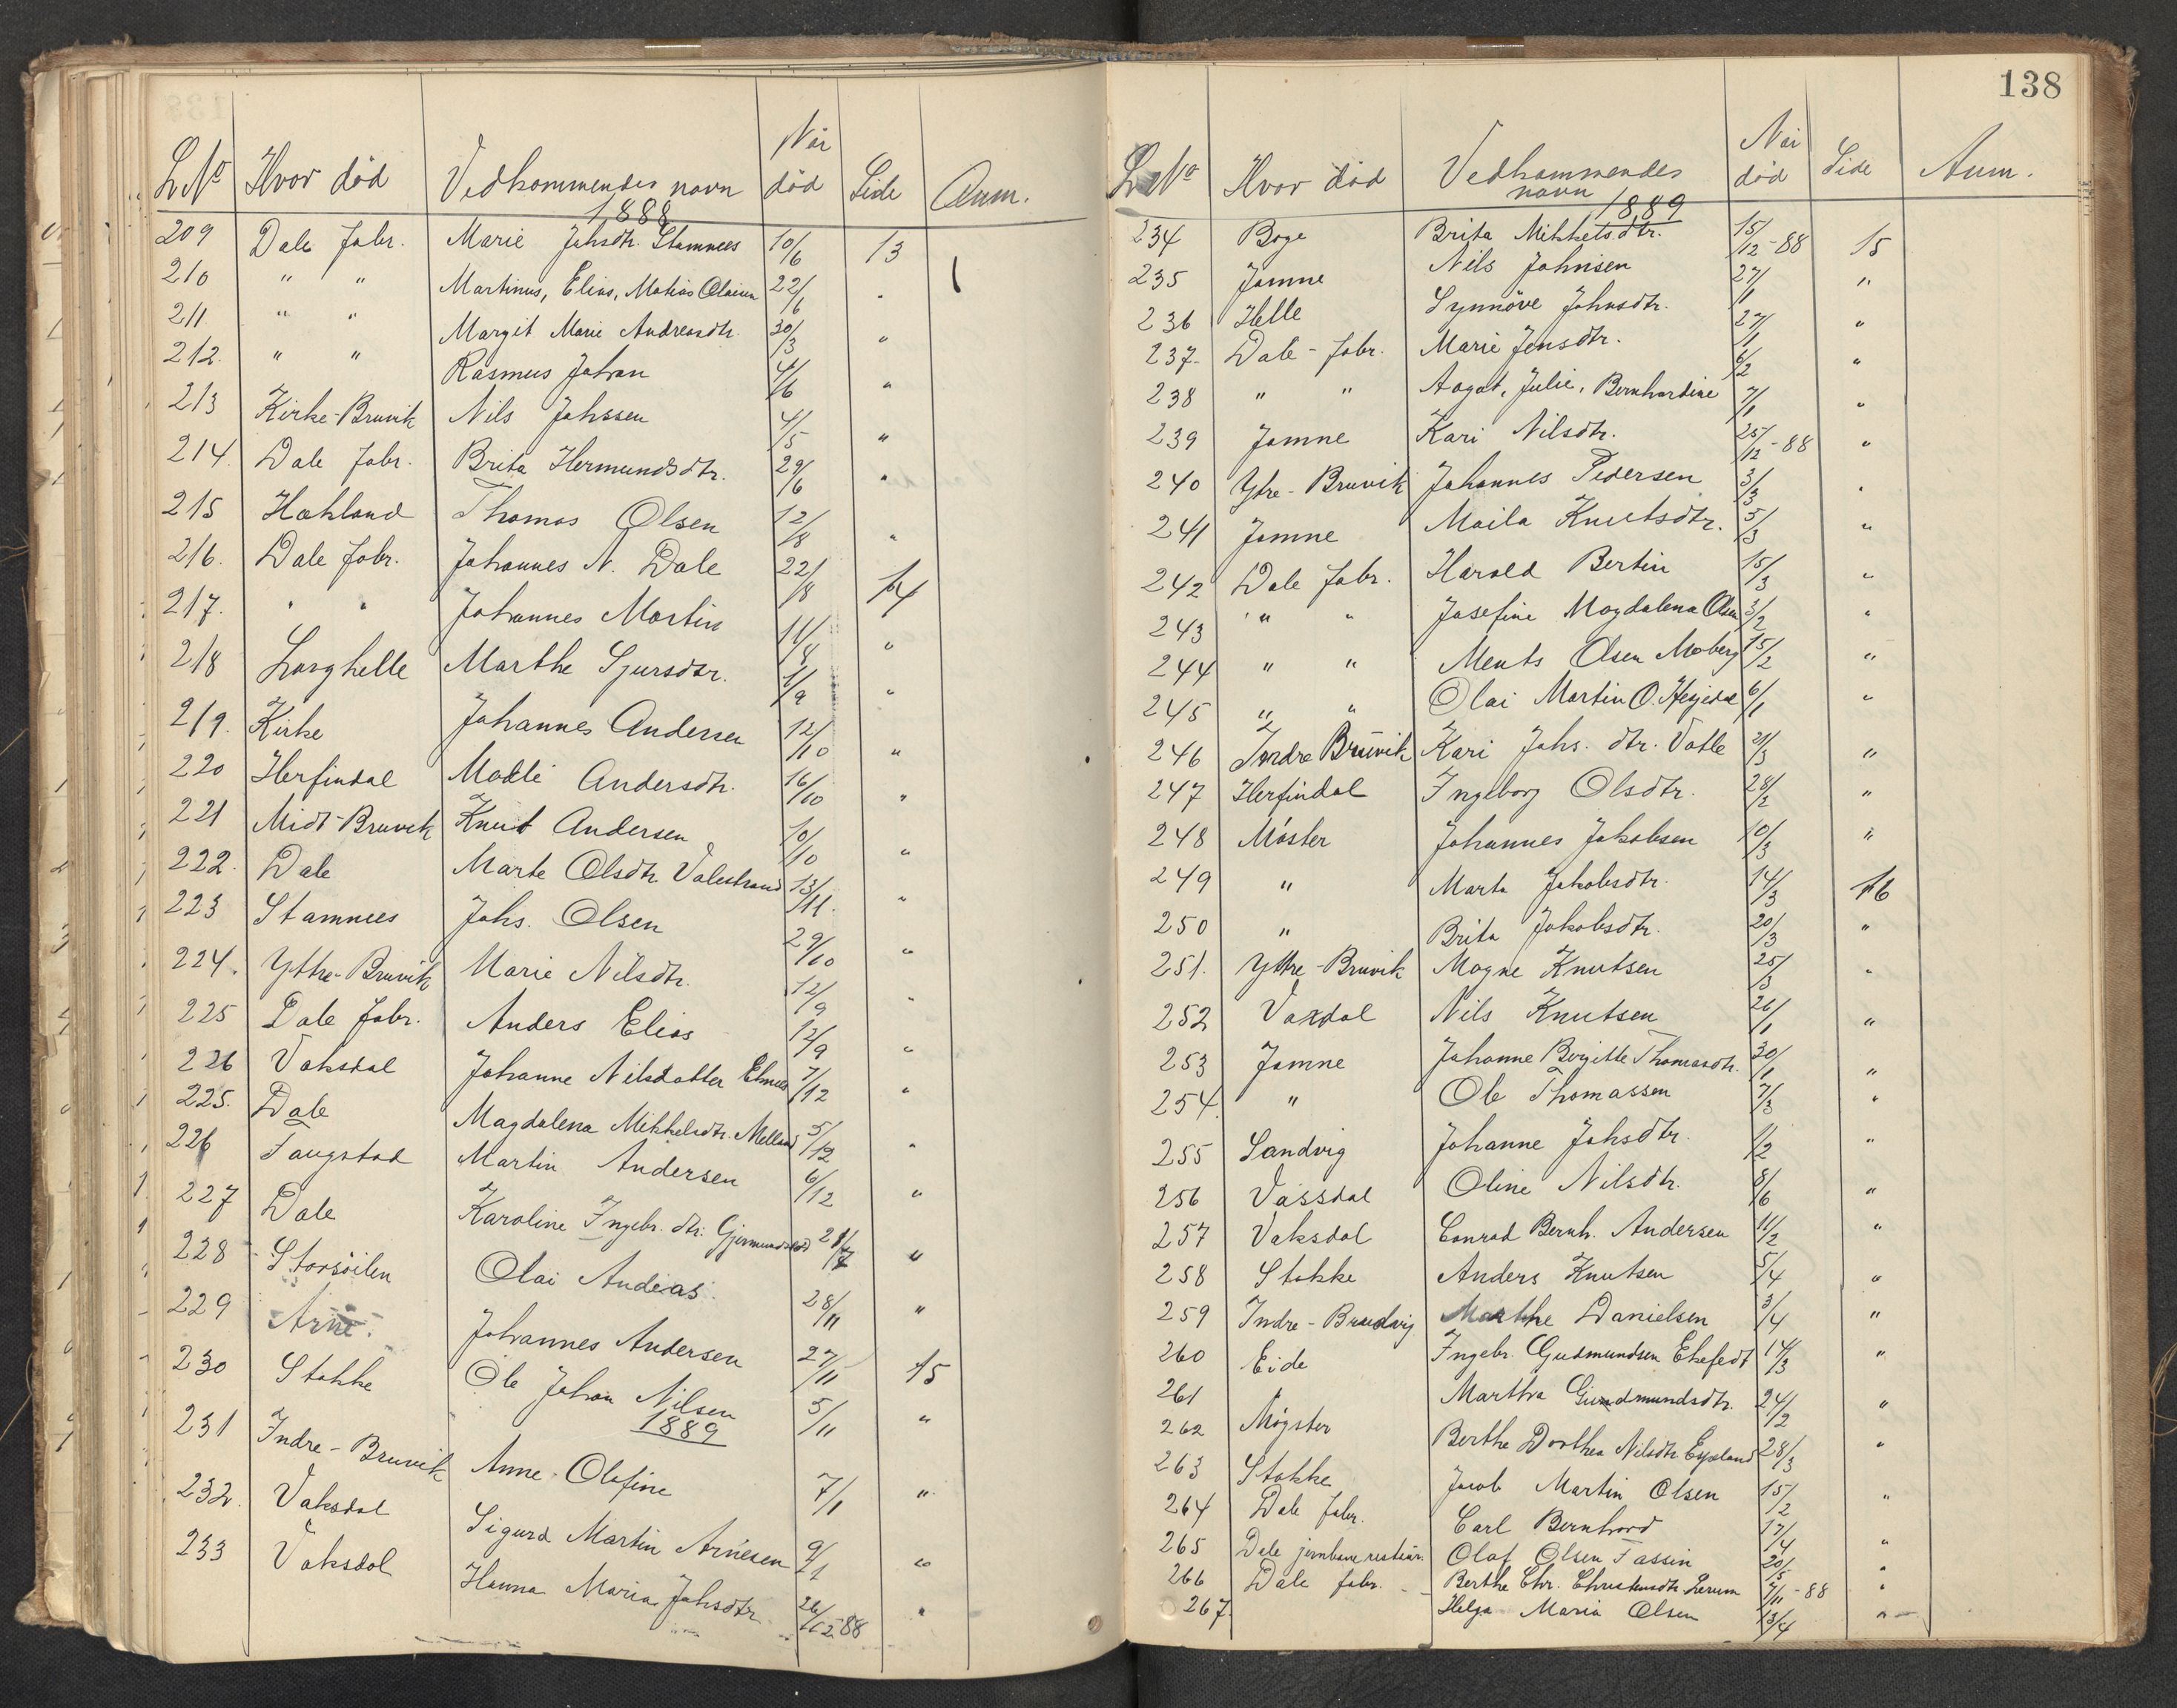 L. No Hvor död Vedkommendes navn Når död Side Anm.
1888
209 Dale fabr. Marie Johsdtr. Stamnes 10/6 13
210 " " Martinus, Elias, Matias Olaisen 22/6 "
211 " " Margit Marie Andreasdtr. 30/3 "
212. " " Rasmus Johan 4/6 "
213 Kirke-Bruvik Nils Johssen 4/5 "
214. Dale fabr. Brita Hermundsdtr. 29/6 "
215 Hækland Thomas Olsen 12/8 "
216. Dale fabr. Johannes N. Dale 22/8 14
217. " " Johannes Martin 11/8 "
218 Langhelle Marthe Sjursdtr. 1/9 "
219. Kirke Johannes Andersen 12/10 "
220 Herfindal Madli Andersdtr. 16/10 "
221 Midt-Bruvik Knut Andersen 10/10 "
222. Dale Marte Olsdtr. Valestrand 13/11. "
223 Stamnes Johs. Olsen 29/10 "
224. Yttre-Bruvik Marie Nilsdtr. 12/9 "
225 Dale fabr. Anders Elias 12/9 "
226 Vaksdal Johanne Nilsdatter 7/12 "
225. Dale Magdalena Mikkelsdtr. Melland 5/12 "
226 Faugstad Martin Andersen 6/12 "
227 Dale Karoline Ingebr. dtr. "
228 Storsöilen Olai Andreas 28/11 "
229 Arne. Johannes Andersen 27/11 15
230 Stokke Ole Johan Nilsen 5/11 "
1889
231 Indre-Bruvik Anne Olofine 7/1 "
232. Vaksdal Sigurd Martin Arnesen 9/1 "
233 Vaksdal Hanna Maria Johsdtr. 26/12-88 "
138
L. No Hvor död Vedkommendes navn Når død Side Anm.
1889
234 Boge Brita Mikkelsdtr. 15/12-88 15
235 Jamne Nils Johnsen 27/1 "
236 Helle Synnöve Johnsdtr. 27/1 "
237. Dale-fabr. Marie Jensdtr. 6/2 "
238 " " Aagot, Julie, Bernhardine 7/1 "
239 Jamne Kari Nilsdtr. 25/12-88 "
240 Ytre-Bruvik Johannes Pedersen 3/3 "
241 Jamne Maila Knutsdtr. 5/3 "
242 Dale fabr. Harald Bertin 15/3 "
243 " " Josefine Magdalena Olsen 3/2 "
244 " " Ments Olsen Moberg 15/2 "
245 " " Olai Martin O. Hesjedal 6/1 "
246 Indre Bruvik Kari Johs. dtr. Vatle 21/3 "
247 Herfindal Ingeborg Olsdtr. 28/2 "
248 Möster Johannes Jakobsen 10/3 "
249 " Marta Jakobsdtr. 14/3 16
250 " Brita Jakobsdtr. 20/3 "
251. Yttre-Bruvik Mogne Knutsen 25/3 "
252 Vaxdal Nils Knutsen 26/1 "
253 Jamne Johanne Birgitte Thomasdtr. 30/1 "
254. " Ole Thomassen 7/3 "
255 Sandvig Johanne Johsdtr. 1/2 "
256 Vassdal Oline Nilsdtr. 8/6 "
257 Vaksdal Conrad Bernh. Andersen 11/2 "
258 Stokke Anders Knutsen 5/4 "
259 Indre-Brudvig Marthe Danielsen 3/4 "
260 Eide Ingebr. Gudmundsen Ekefedt 14/3 "
261 Martha Gudmundsdtr. 24/2 "
262 Mögster Berthe Dorthea Nilsdtr. 28/3 "
263 Stokke Jacob Martin Olsen 15/2 "
264 Dale fabr. Carl Bernhard 17/4 "
265 Dale Olaf Olsen Fassin 20/5 "
266 Dale fabr. Berthe Chr. Lerum 7/11-88 "
267. Helga Maria Olsen 13/4 "